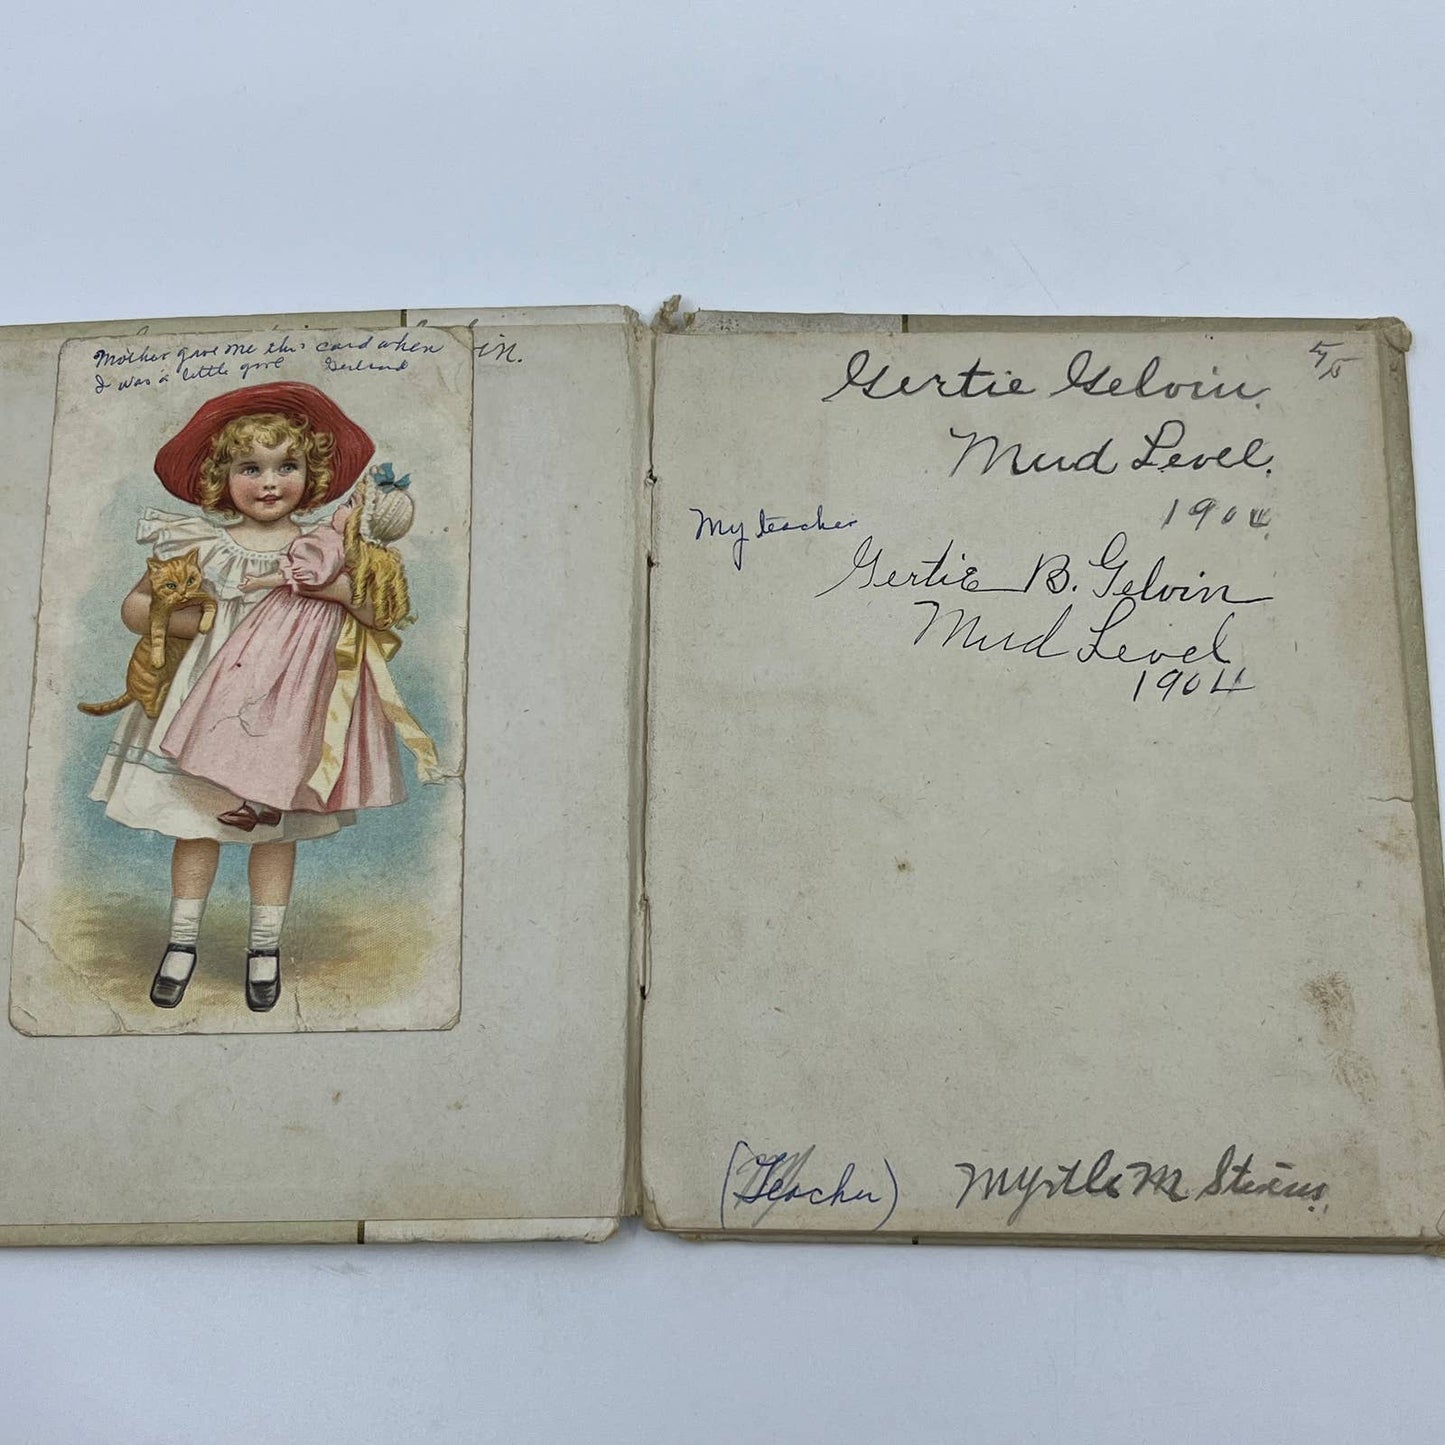 Mother gave me this card when
I was a little girl Gertrud
in.
5/5
Gertie Gelvin.
Mud Level.
1904
My teacher
Gertie B. Gelvin
Mud Level
1904
(Teacher) Myrtle M Stevens.